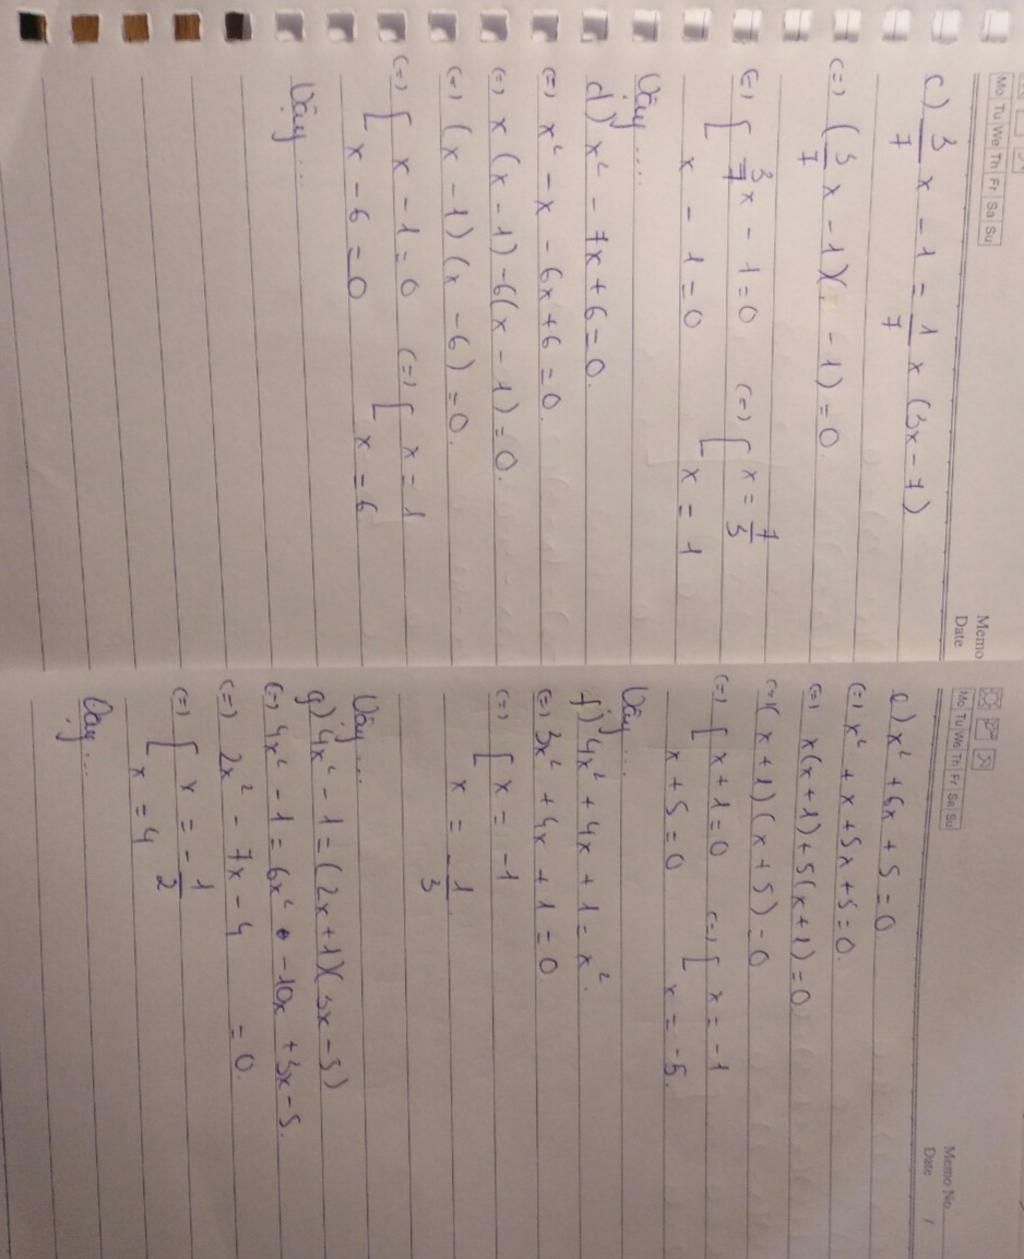 Mo Tu We Th Fr Sa Su
Memo
Date
c) 3/7 x - 1 = 1/7 x (3x - 7)
(=) (3/7 x - 1)( - 1) = 0
(=) [ 3/7 x - 1 = 0 (=) [ x = 7/3
x - 1 = 0 x = 1
Vậy ....
d) x² - 7x + 6 = 0.
(=) x² - x - 6x + 6 = 0.
(=) x (x - 1) - 6(x - 1) = 0.
(=) (x - 1) (x - 6) = 0.
(=) [ x - 1 = 0 (=) [ x = 1
x - 6 = 0 x = 6
Vậy ...
Memo No.
Mo Tu We Th Fr Sa Su
Date /
e) x² + 6x + 5 = 0
(=) x² + x + 5x + 5 = 0.
(=) x(x + 1) + 5(x + 1) = 0
(=) (x + 1) (x + 5) = 0
(=) [ x + 1 = 0 (=) [ x = -1
x + 5 = 0 x = -5.
Vậy ...
f) 4x² + 4x + 1 = x².
(=) 3x² + 4x + 1 = 0
(=) [ x = -1
x = -1/3
Vậy ...
g) 4x² - 1 = (2x + 1)(3x - 5)
(=) 4x² - 1 = 6x² - 10x + 3x - 5.
(=) 2x² - 7x - 4 = 0.
(=) [ x = -1/2
x = 4
Vậy ...